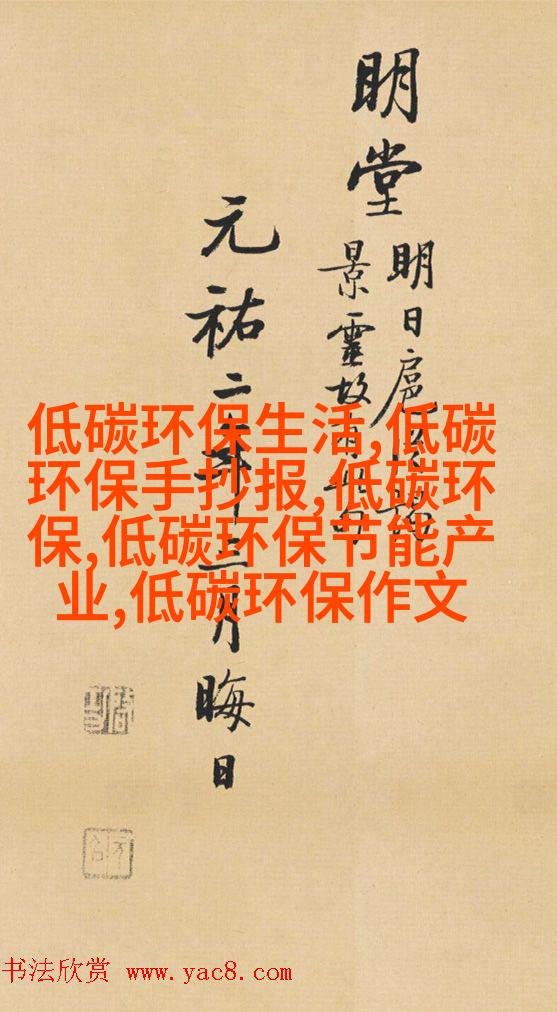 明堂
明日扈
景靈故有此句
元祐二年十二月晦日
低碳环保生活,低碳
环保手抄报,低碳环
保,低碳环保节能产
业,低碳环保作文
书法欣赏 www.yac8.com